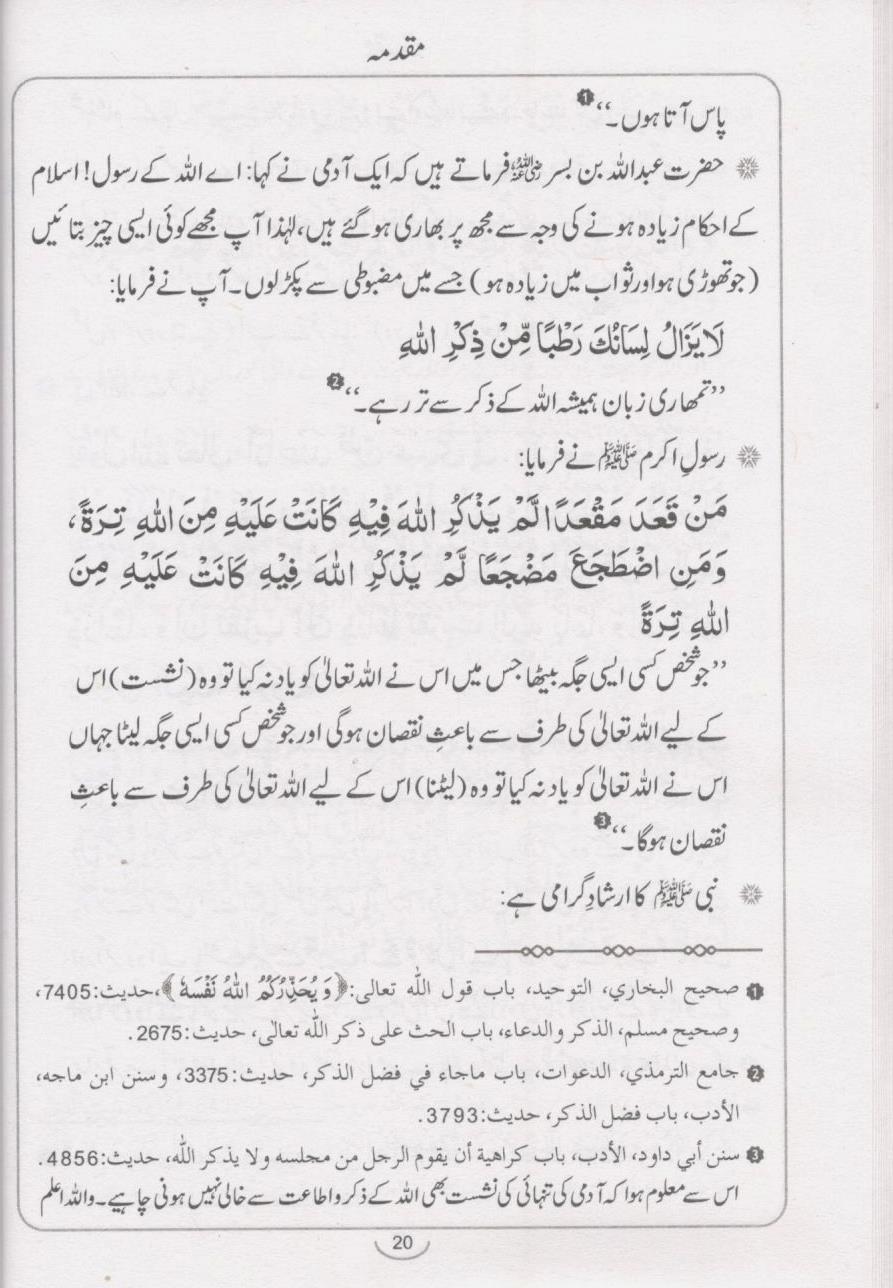 مقدمہ
پاس آتا ہوں۔‘‘ ❶
حضرت عبداللہ بن بسر رضی اللہ عنہ فرماتے ہیں کہ ایک آدمی نے کہا: اے اللہ کے رسول! اسلام
کے احکام زیادہ ہونے کی وجہ سے مجھ پر بھاری ہو گئے ہیں، لہٰذا آپ مجھے کوئی ایسی چیز بتائیں
(جو تھوڑی ہو اور ثواب میں زیادہ ہو) جسے میں مضبوطی سے پکڑ لوں۔ آپ نے فرمایا:
لَا يَزَالُ لِسَانُكَ رَطْبًا مِّنْ ذِكْرِ اللهِ
’’تمھاری زبان ہمیشہ اللہ کے ذکر سے تر رہے۔‘‘ ❷
رسولِ اکرم ﷺ نے فرمایا:
مَنْ قَعَدَ مَقْعَدًا لَّمْ يَذْكُرِ اللهَ فِيْهِ كَانَتْ عَلَيْهِ مِنَ اللهِ تِرَةً،
وَمَنِ اضْطَجَعَ مَضْجَعًا لَّمْ يَذْكُرِ اللهَ فِيْهِ كَانَتْ عَلَيْهِ مِنَ
اللهِ تِرَةً
’’جو شخص کسی ایسی جگہ بیٹھا جس میں اس نے اللہ تعالیٰ کو یاد نہ کیا تو وہ (نشست) اس
کے لیے اللہ تعالیٰ کی طرف سے باعثِ نقصان ہوگی اور جو شخص کسی ایسی جگہ لیٹا جہاں
اس نے اللہ تعالیٰ کو یاد نہ کیا تو وہ (لیٹنا) اس کے لیے اللہ تعالیٰ کی طرف سے باعثِ
نقصان ہوگا۔‘‘ ❸
نبی ﷺ کا ارشادِ گرامی ہے:
❶ صحيح البخاري، التوحيد، باب قول الله تعالى: ﴿وَيُحَذِّرُكُمُ اللهُ نَفْسَهٗ﴾، حديث:7405،
وصحيح مسلم، الذكر والدعاء، باب الحث على ذكر الله تعالى، حديث:2675.
❷ جامع الترمذي، الدعوات، باب ماجاء في فضل الذكر، حديث:3375، وسنن ابن ماجه،
الأدب، باب فضل الذكر، حديث:3793.
❸ سنن أبي داود، الأدب، باب كراهية أن يقوم الرجل من مجلسه ولا يذكر الله، حديث:4856.
اس سے معلوم ہوا کہ آدمی کی تنہائی کی نشست بھی اللہ کے ذکر و اطاعت سے خالی نہیں ہونی چاہیے۔ واللہ اعلم
20